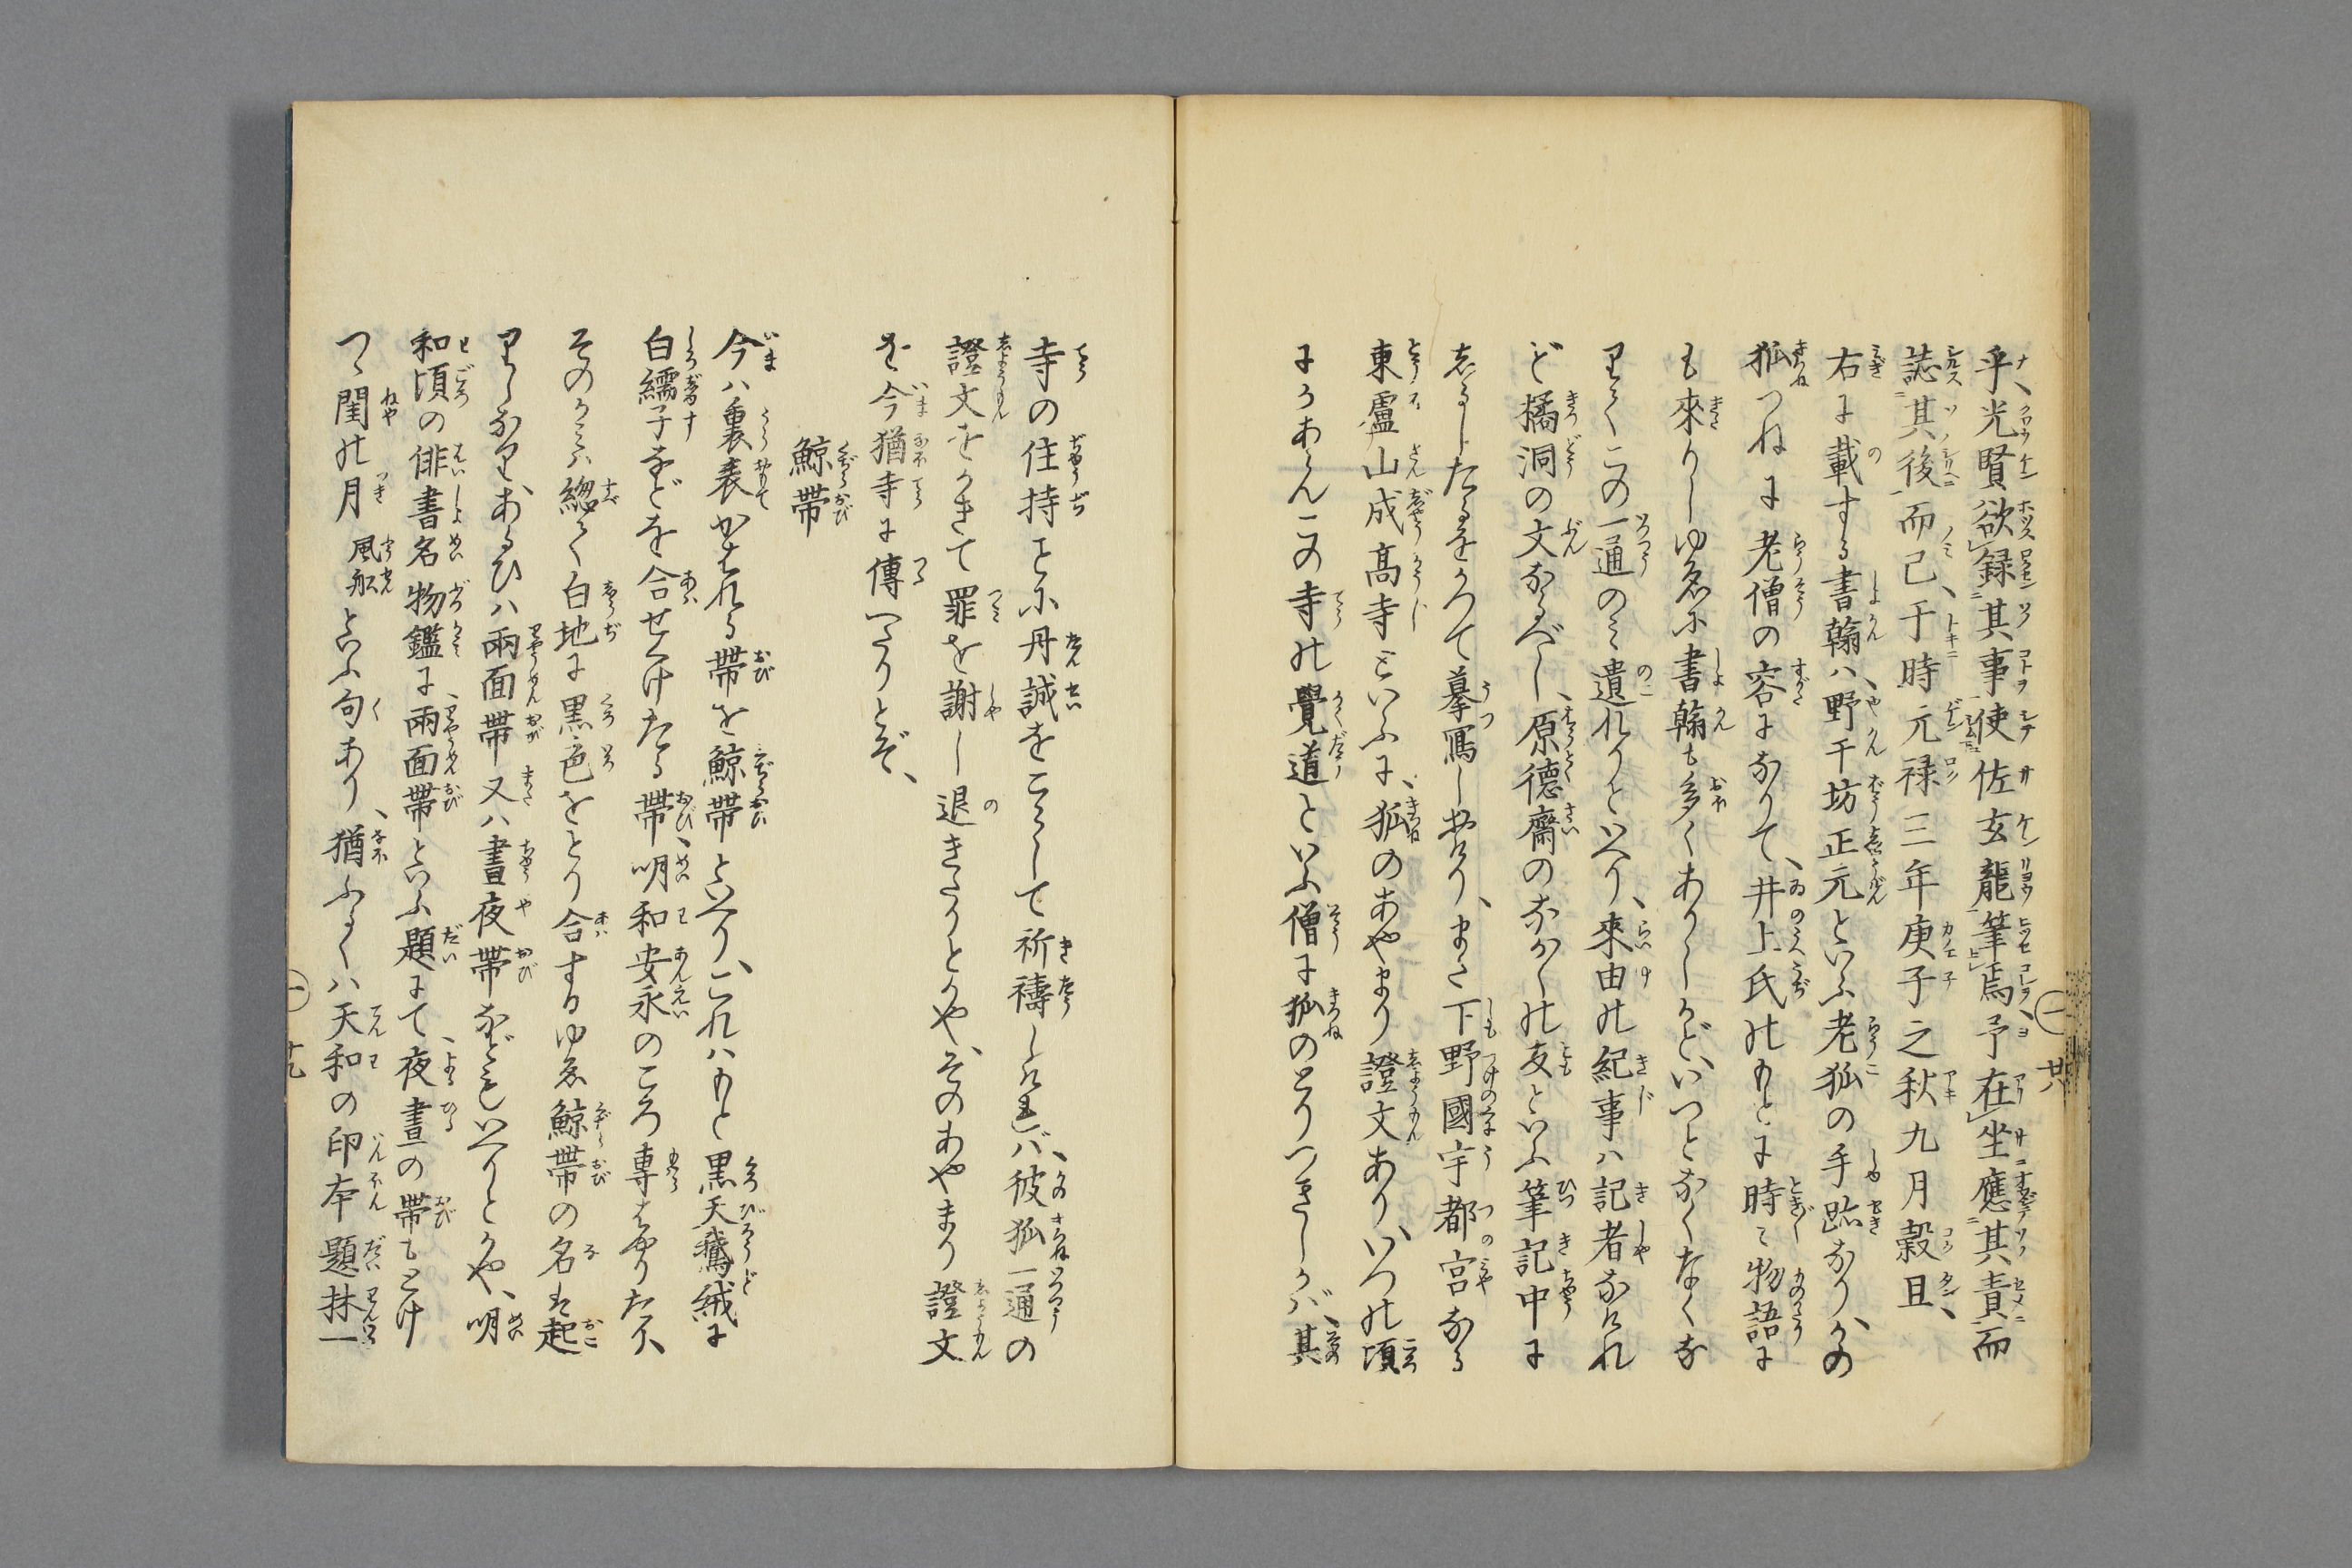 乎、光賢欲録其事使佐玄龍筆焉、予在坐應其責而
誌其後而已、于時元禄三年庚子之秋九月穀旦、
右に載する書翰ハ、野干坊正元といふ老狐の手跡なり、かの
狐つねに老僧の容になりて、井上氏のもとに時々物語に
も來りしゆゑに書翰も多くありしかど、いつとなくなくな
りてこの一通のミ遺れりといへり、來由の紀事ハ記者なけれ
ど橘洞の文なるべし、原德齋のなかしの友といふ筆記中に
志るしたるをかつて摹寫しおけり、また下野國宇都宮なる
東盧山成高寺といふに、狐のあやまり證文あり、いつの頃
にかあらんこの寺の覺道といふ僧に狐のとりつきしかバ、其
寺の住持とに丹誠をこらして祈禱しけれバ、彼狐一通の
證文をかきて罪を謝し退きたりとかや、そのあやまり證文
を今猶寺に傳へたりとぞ、
鯨帶
今ハ裏表かはれる帶を鯨帶といへり、これハもと黒天鵞絨に
白繻子などを合せつけたる帶、明和安永のころ専はやりたり、
そのかミハ總て白地に黒色をとり合するゆゑ鯨帶の名は起
りしなりあるひハ兩面帶又ハ晝夜帶などもいへりとかや、明
和頃の俳書名物鑑に、兩面帶といふ題にて、夜晝の帶もとけ
つゝ閨の月 風舩 といふ句あり、猶ふるくハ天和の印本題林一
一 廿
一 廿九